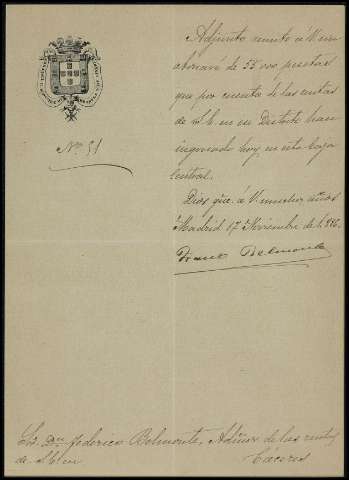 Nº 51
Adjunto remito á V. un
abonaré de 55.000 pesetas
que por cuenta de las rentas
de S.E. en su Distrito han
ingresado hoy en esta Caja
Central.
Dios gue. á V. muchos años
Madrid 17 Noviembre de 1.886.
Franco Belmonte
Sr. Dn. Federico Belmonte, Admor. de las rentas
de S.E. en Cáceres